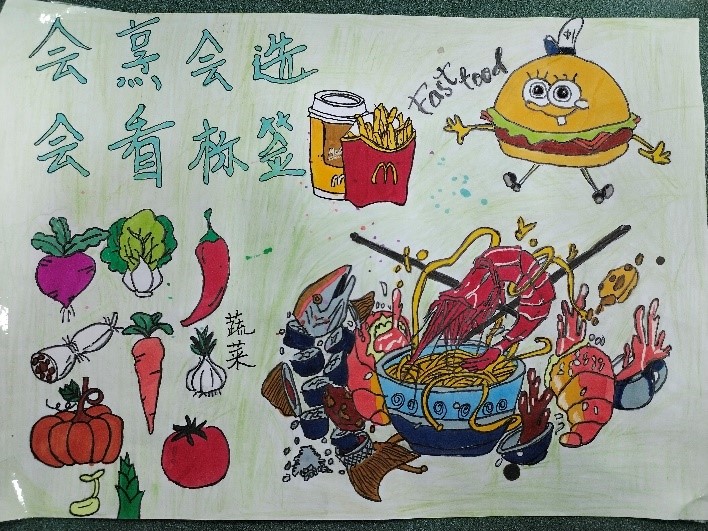 会烹会选
会看标签
Fast food
蔬菜